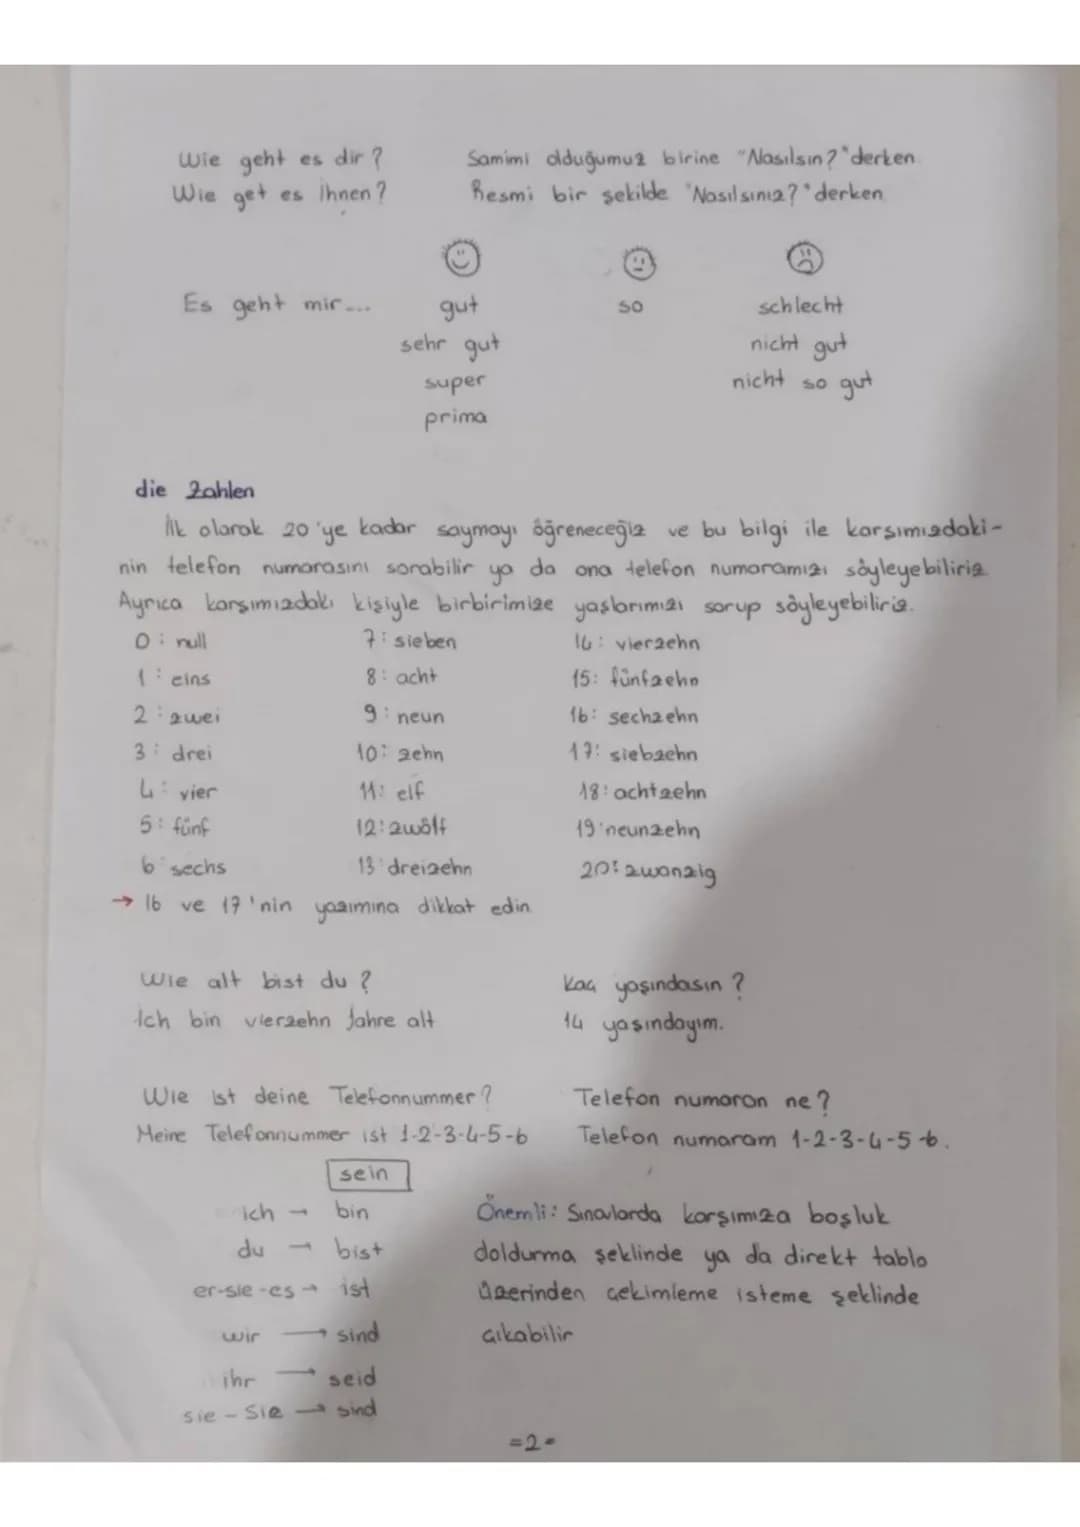 Wie geht es dir? Samimi olduğumuz birine "Nasılsın?" derken.
Wie get es Ihnen? Resmi bir şekilde "Nasılsınız?" derken
Es geht mir... gut so schlecht
sehr gut nicht gut
super nicht so gut
prima
die Zahlen
İlk olarak 20'ye kadar saymayı öğreneceğiz ve bu bilgi ile karşımızdaki-
nin telefon numarasını sorabilir ya da ona telefon numaramızı söyleyebiliriz.
Ayrıca karşımızdaki kişiyle birbirimize yaşlarımızı sorup söyleyebiliriz.
0: null 7: sieben 14: vierzehn
1: eins 8: acht 15: fünfzehn
2: zwei 9: neun 16: sechzehn
3: drei 10: zehn 17: siebzehn
4: vier 11: elf 18: achtzehn
5: fünf 12: zwölf 19: neunzehn
6: sechs 13: dreizehn 20: zwanzig
→ 16 ve 17'nin yazımına dikkat edin.
Wie alt bist du? Kaç yaşındasın?
Ich bin vierzehn Jahre alt 14 yaşındayım.
Wie ist deine Telefonnummer? Telefon numaran ne?
Meine Telefonnummer ist 1-2-3-4-5-6 Telefon numaram 1-2-3-4-5-6.
sein
ich → bin Önemli: Sınavlarda karşımıza boşluk
du → bist doldurma şeklinde ya da direkt tablo
er-sie-es → ist üzerinden çekimleme isteme şeklinde
wir → sind çıkabilir
ihr → seid
sie - Sie → sind
=2=